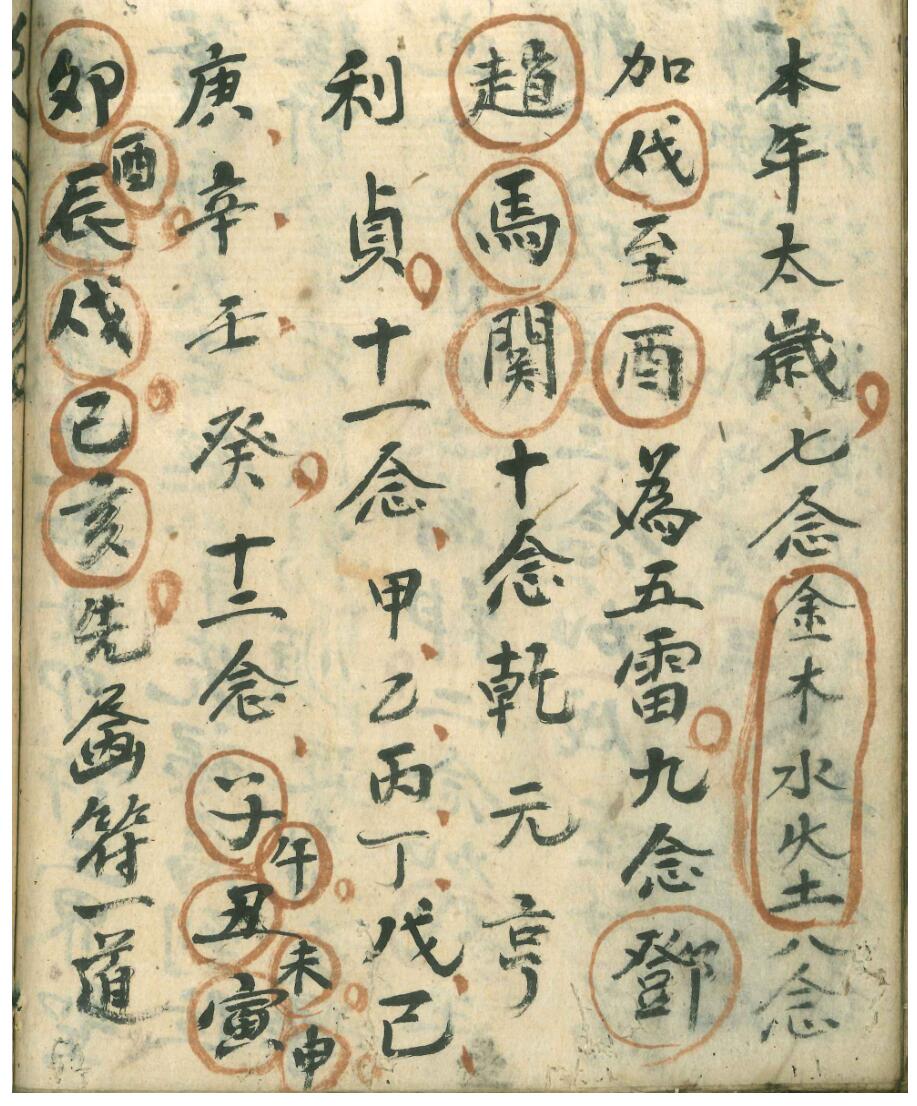 本年太歲七念金木水火土八念
加伐至酉為五雷九念鄧
趙馬関十念乾元亨
利貞十一念甲乙丙丁戊己
庚辛壬癸十二念子午丑未寅申
卯酉辰戌己亥先畵符一道